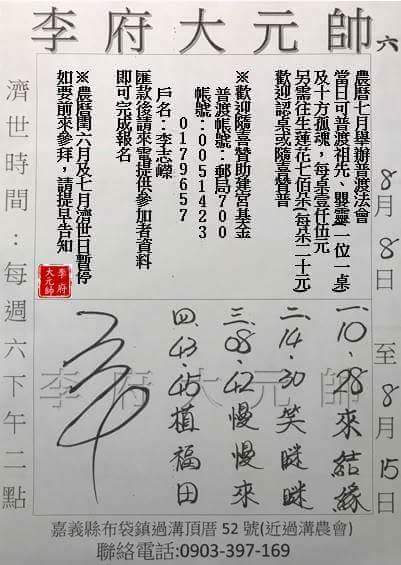 李府大元帥 六
農曆七月舉辦普渡法會
當日可普渡祖先、嬰靈(一位一桌)
及十方孤魂，每桌壹仟伍元
另需往生蓮花七佰朵(每朵二十元)
歡迎認桌或隨喜贊普
※歡迎隨喜贊助建宮基金
普渡帳號：郵局700
帳號：0051423
0179657
戶名：李志嶸
匯款後請來電提供參加者資料
即可完成報名
※農曆閏六月及七月濟世日暫停
如要前來參拜，請提早告知
李府
大元帥
8月8日至8月15日
一、10、28來結緣
二、14、30笑瞇瞇
三、08、42慢慢來
四、43、45植福田
李府大元帥
濟世時間：每週六下午二點
嘉義縣布袋鎮過溝頂厝 52 號(近過溝農會)
聯絡電話:0903-397-169